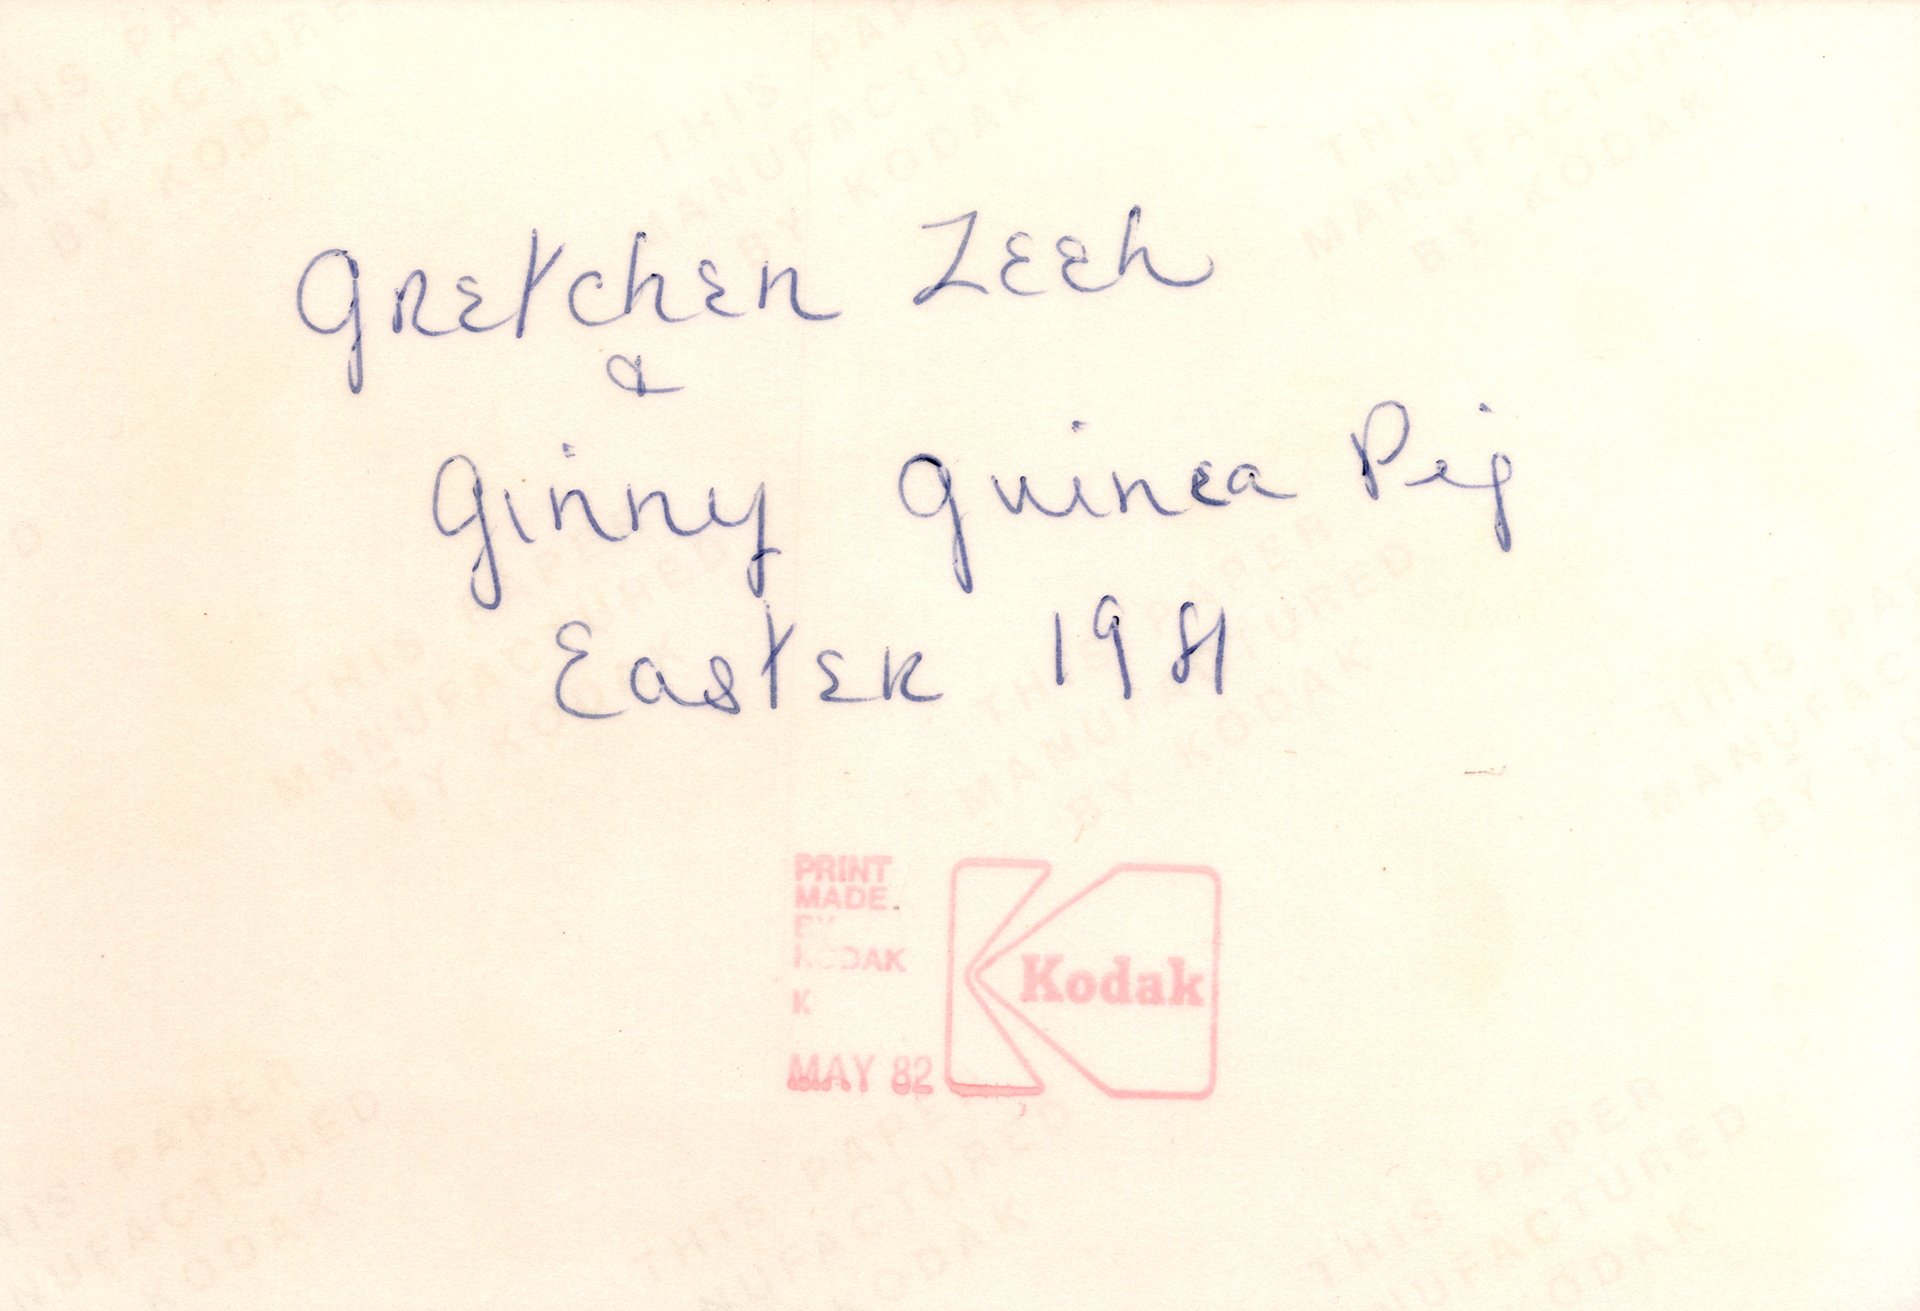 Gretchen Zeeh
&
Ginny Guinea Pig
Easter 1981
PRINT
MADE
BY
KODAK
K
MAY 82
Kodak
THIS PAPER
MANUFACTURED
BY KODAK